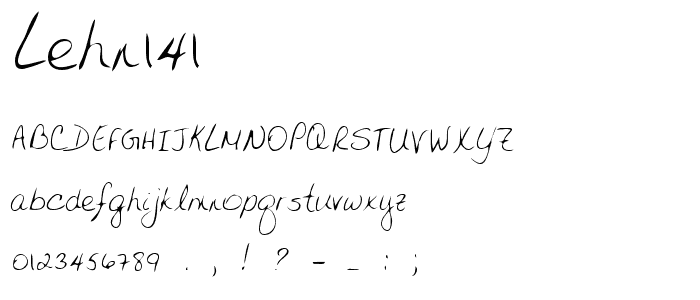 Lehn141
ABCDEFGHIJKLMNOPQRSTUVWXYZ
abcdefghijklmnopqrstuvwxyz
0123456789 . , ! ? - _ : ;